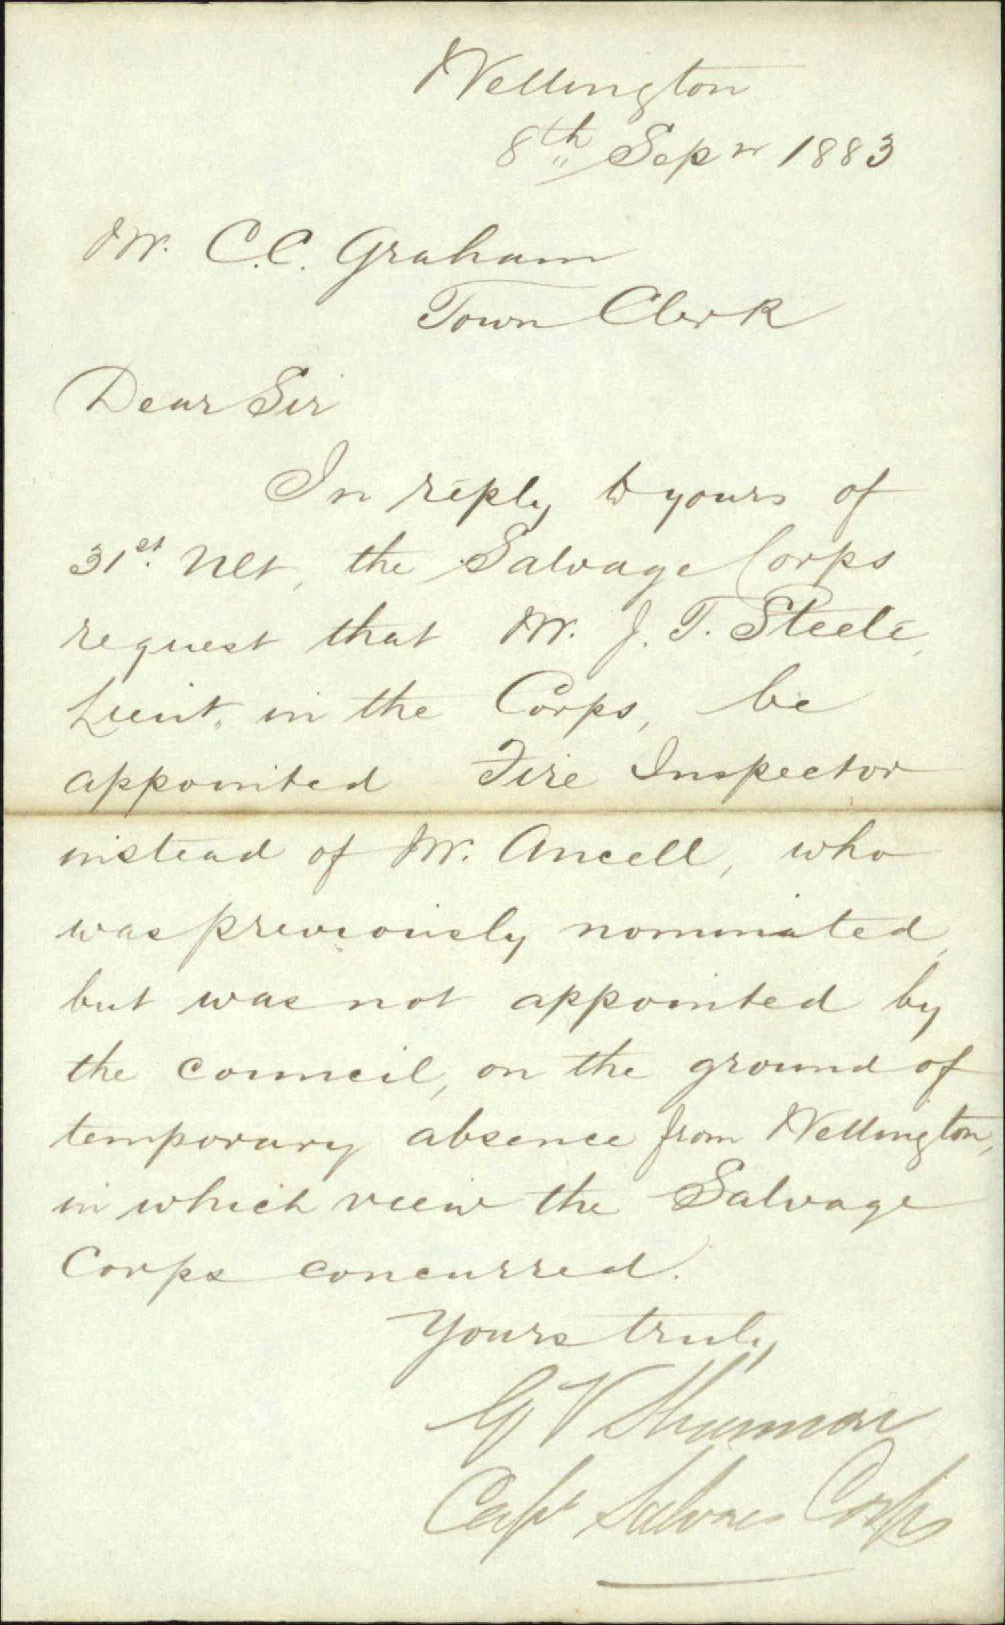 Wellington
8th Sepr 1883
Mr. C.C. Graham
Town Clerk
Dear Sir
In reply to yours of
31st. Ult, the Salvage Corps
request that Mr. J. T. Steele,
Lieut. in the Corps, be
appointed Fire Inspector
instead of Mr. Ancell, who
was previously nominated,
but was not appointed by
the council, on the ground of
temporary absence from Wellington,
in which view the Salvage
Corps concurred.
Yours truly
G V Shannon
Capt Salvage Corps